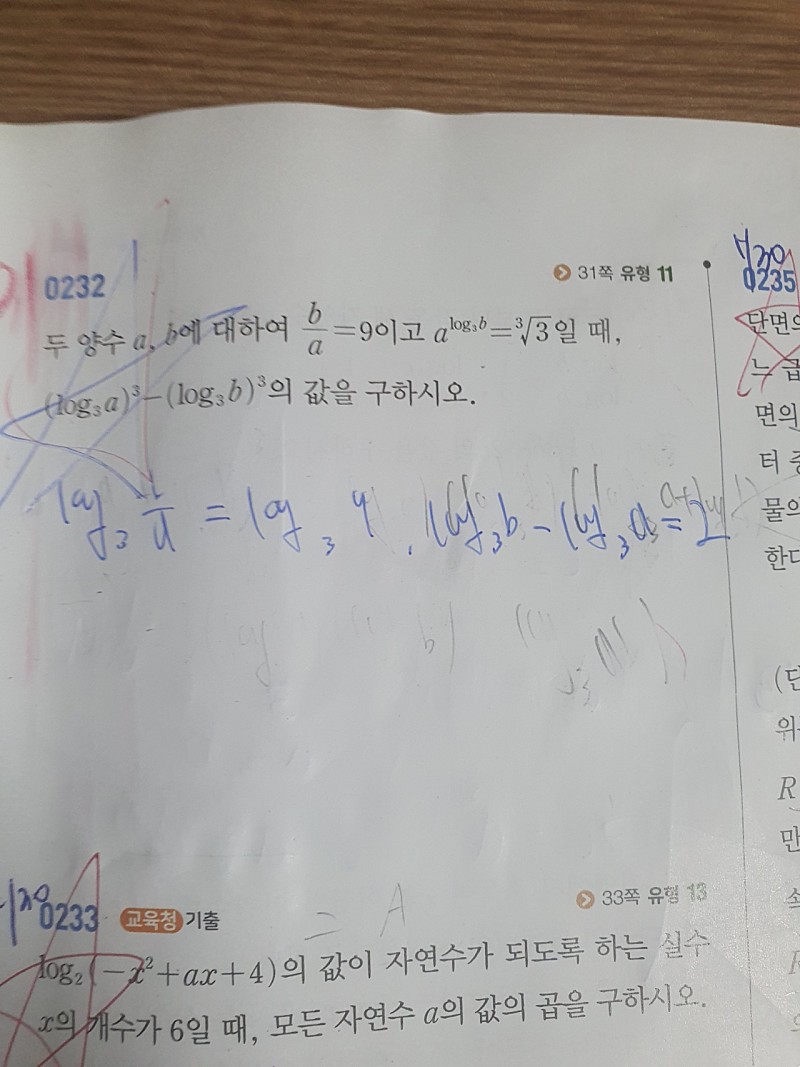 0232
31쪽 유형 11
두 양수 a, b에 대하여 b/a=9이고 a^{log₃b}=∛3일 때,
(log₃a)³-(log₃b)³의 값을 구하시오.
log₃b - log₃a = 2
0233 교육청 기출
33쪽 유형 13
= A
log₂(-x²+ax+4)의 값이 자연수가 되도록 하는 실수
x의 개수가 6일 때, 모든 자연수 a의 값의 곱을 구하시오.
0235
단면의
느 급
면의
터
물의
한다
(단
위
R
만